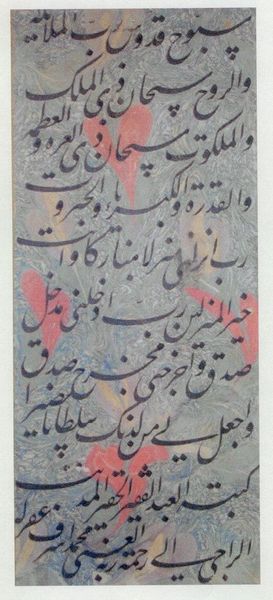 سبوح قدوس رب الملائكة
والروح سبحان ذي الملك
والملكوت سبحان ذي العزة والعظمة
والقدرة والكبرياء والجبروت
رب انزلني منزلا مباركا وانت
خير المنزلين رب ادخلني مدخل
صدق واخرجني مخرج صدق
واجعل لي من لدنك سلطانا نصيرا
كتبه العبد الفقير الحقير المذنب
الراجي الى رحمة ربه الغني محمد اشرف غفر له